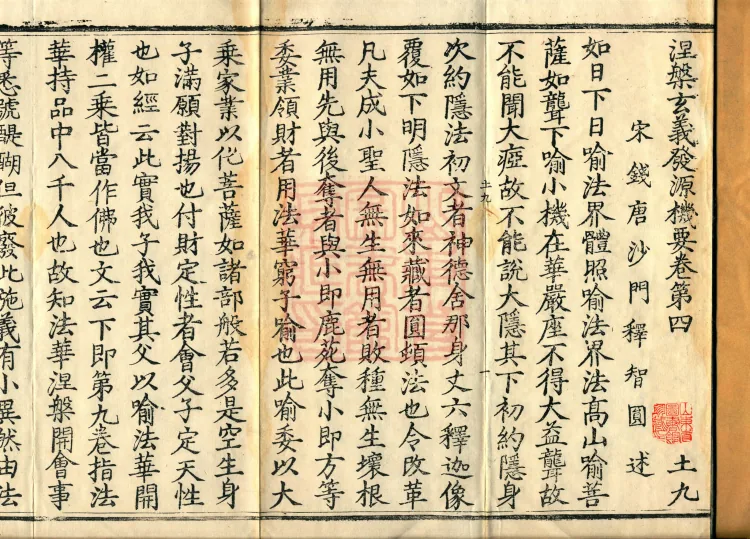 涅槃玄義發源機要卷第四 土九
宋錢唐沙門釋智圓述
如日下日喻法界體照喻法界法高山喻菩
薩如聾下喻小機在華嚴座不得大益聾故
不能聞大瘂故不能說大隱其下初約隱身
土九 一
次約隱法初文者神德舍那身丈六釋迦像
覆如下明隱法如來藏者圓頓法也令改革
凡夫成小聖人無生無用者敗種無生壞根
無用先與後奪者與小即鹿苑奪小即方等
委業領財者用法華窮子喻也此喻委以大
乘家業以化菩薩如諸部般若多是空生身
子滿願對揚也付財定性者會父子定天性
也如經云此實我子我實其父以喻法華開
權二乘皆當作佛也文云下即第九卷指法
華持品中八千人也故知法華涅槃開會事
等悉號醍醐但彼發此施義有小異然由法